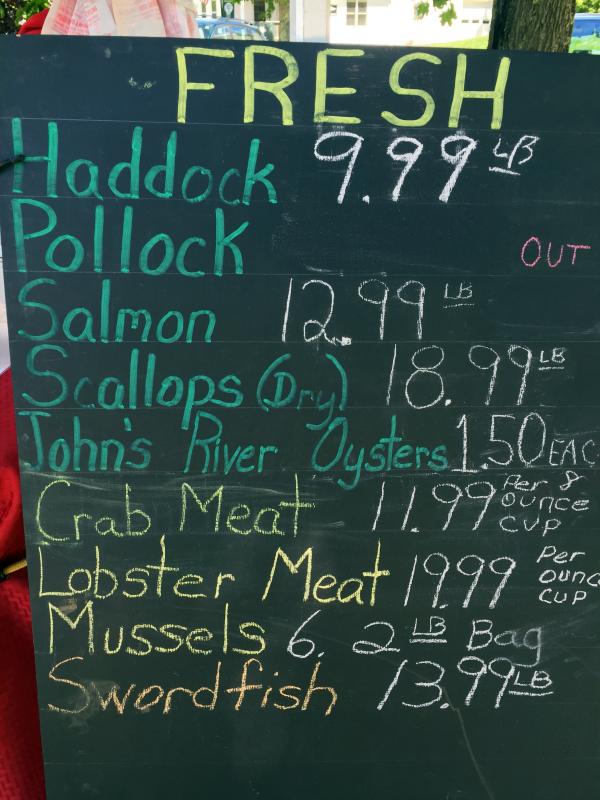 FRESH
Haddock 9.99 LB
Pollock OUT
Salmon 12.99 LB
Scallops (Dry) 18.99 LB
John's River Oysters 1.50 EAC
Crab Meat 11.99 Per 8 ounce cup
Lobster Meat 19.99 Per ounc cup
Mussels 6. 2 LB Bag
Swordfish 13.99 LB